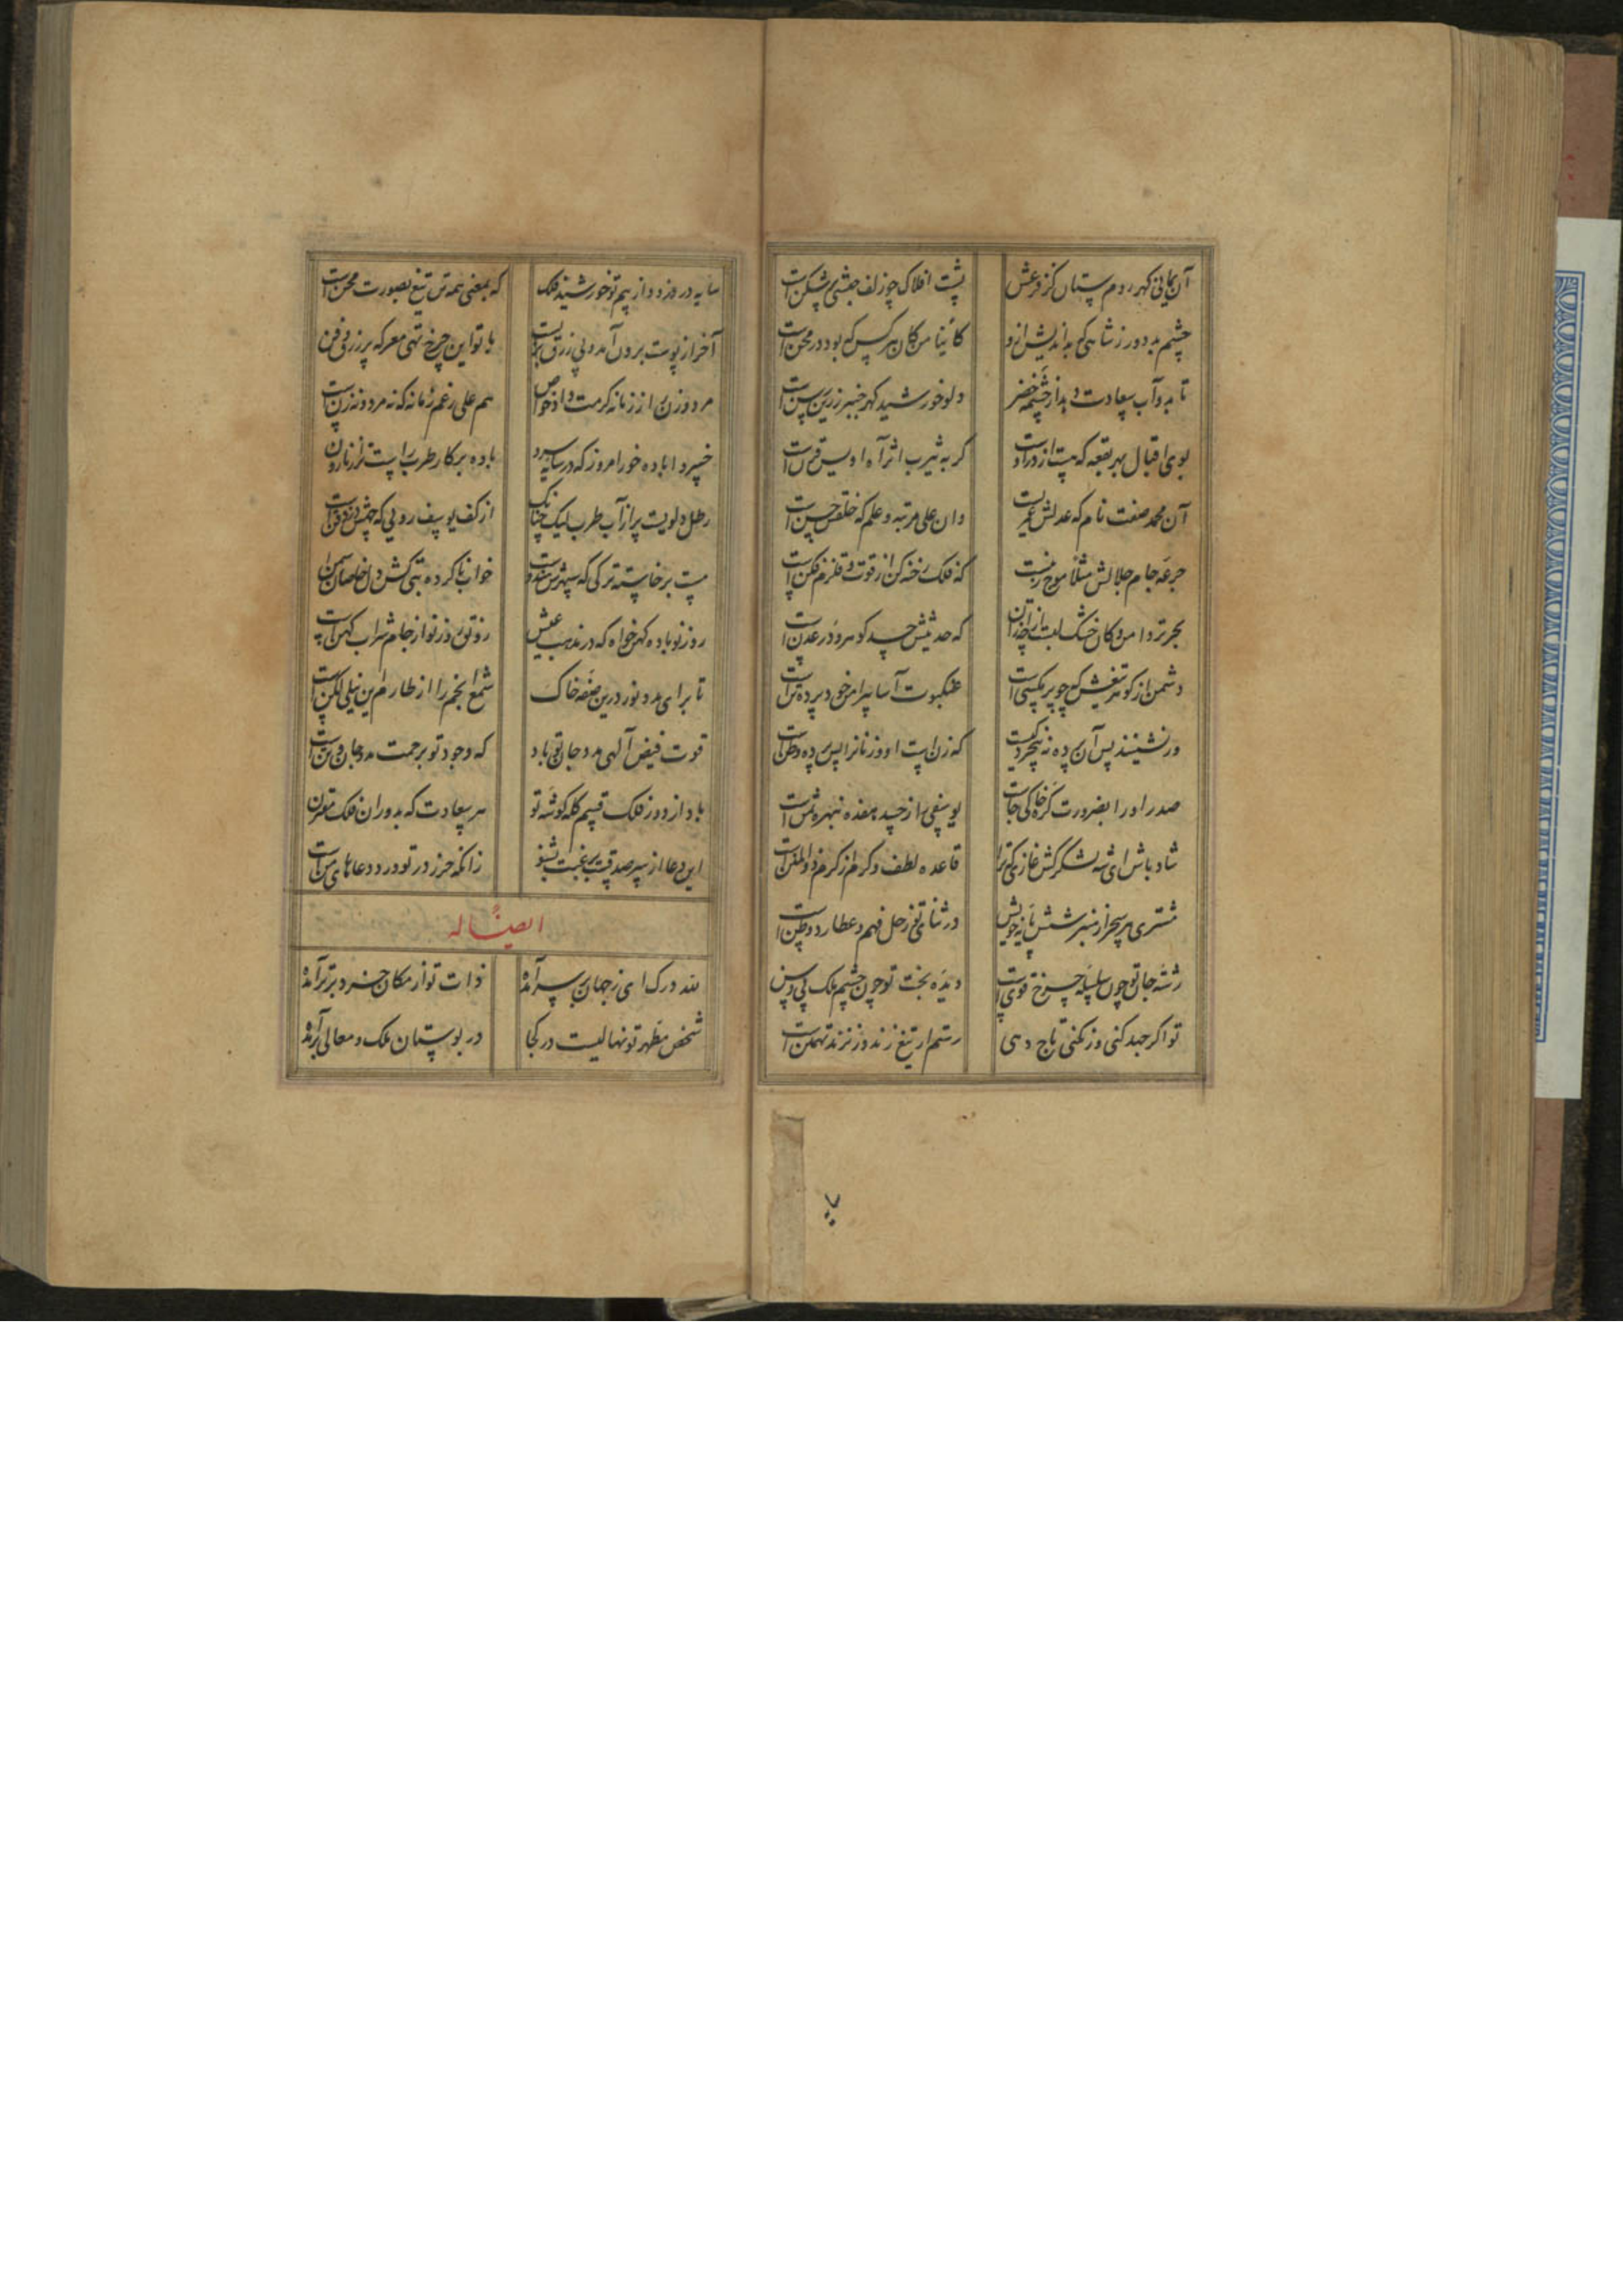 پشت افلاک چو زلف حبشی پر شکن است
چشم بد دور ز شاهی که بد اندیش از و کائنا من کان هر کس که بود در محن است
تا بدو آب سعادت دهد از چشمه خضر دلو خورشید که در چنبر زرین رسن است
بوی اقبال بهر بقعه که هست از در اوست گر به یثرب اثر آه اویس قرن است
آن محمد صفت نام که عدلش عمریست وان علی مرتبه و علم که خلقش حسن است
جرعه جام جلالش مثلا موج زنیست که فلک رخنه کن از قوت و قلزم فکن است
بحر تر دامن و کان خشک لبست که حدیثش چه که در عدن است
دشمن از گوهر تیغش که چو پر مگسی است عنکبوت آسا پیرامن خود پرده تن است
ور نشیند پس آن پرده نه که زن است او و زنان را پس پرده وطن است
صدر او را بضرورت کره خاکی جاست یوسفی را ز چه هفده نبهره ثمن است
شاد باش ای شه لشکرکش غازی که ترا قاعده لطف و کرم از کرم ذو المنن است
مشتری هر سحر از منبر شش پایه خویش در ثنای تو زحل فهم و عطارد فطن است
رشته جان تو چون سلسله چرخ قوی است دیده بخت تو چون چشم ملک بی وسن
تو اگر جهد کنی ور نکنی تاج دهی رستم ار تیغ زند ور نزند تهمتن است
سایه در دزدد از بیم تو خورشید فلک که بمعنی همه تن تیغ بصورت مجن است
آخر از پوست برون آمد و بی زرق با تو این چرخ تهی معرکه پر زرق و فن
مرد و زن را ز زمانه کرمت داد خواص هم علی رغم زمانه که نه مرد و نه زن است
خسروا باده خور امروز که در سایه سرو باده بر کار طرب راست تر از نارون
رطل دلویست پر از آب طرب لیک چنانک از کف یوسف رویی که چهش در ذقن است
مست برخاسته ترکی که سپهرش هندوست خواب ناکرده
روز نو باده کهن خواه که در مذهب عیش رونق روز نو از جام شراب کهن است
تا برای مدد نور درین صفه خاک شمع انجم را از طارم این نیلی لگن است
قوت فیض الهی مدد جان تو باد که وجود تو برحمت مدد جان و تن است
باد از دور فلک قسم کله گوشه تو هر سعادت که بدوران فلک مقترن
این دعا از سر صدقست برغبت بشنو زانکه حرز در تو ورد دعاهای من است
ایضاً له
لله درک ای ز جهان بر سر آمده ذات تو از مکان خرد برتر آمده
شخص مطهر تو نهالیست در کجا در بوستان ملک و معالی برآمده